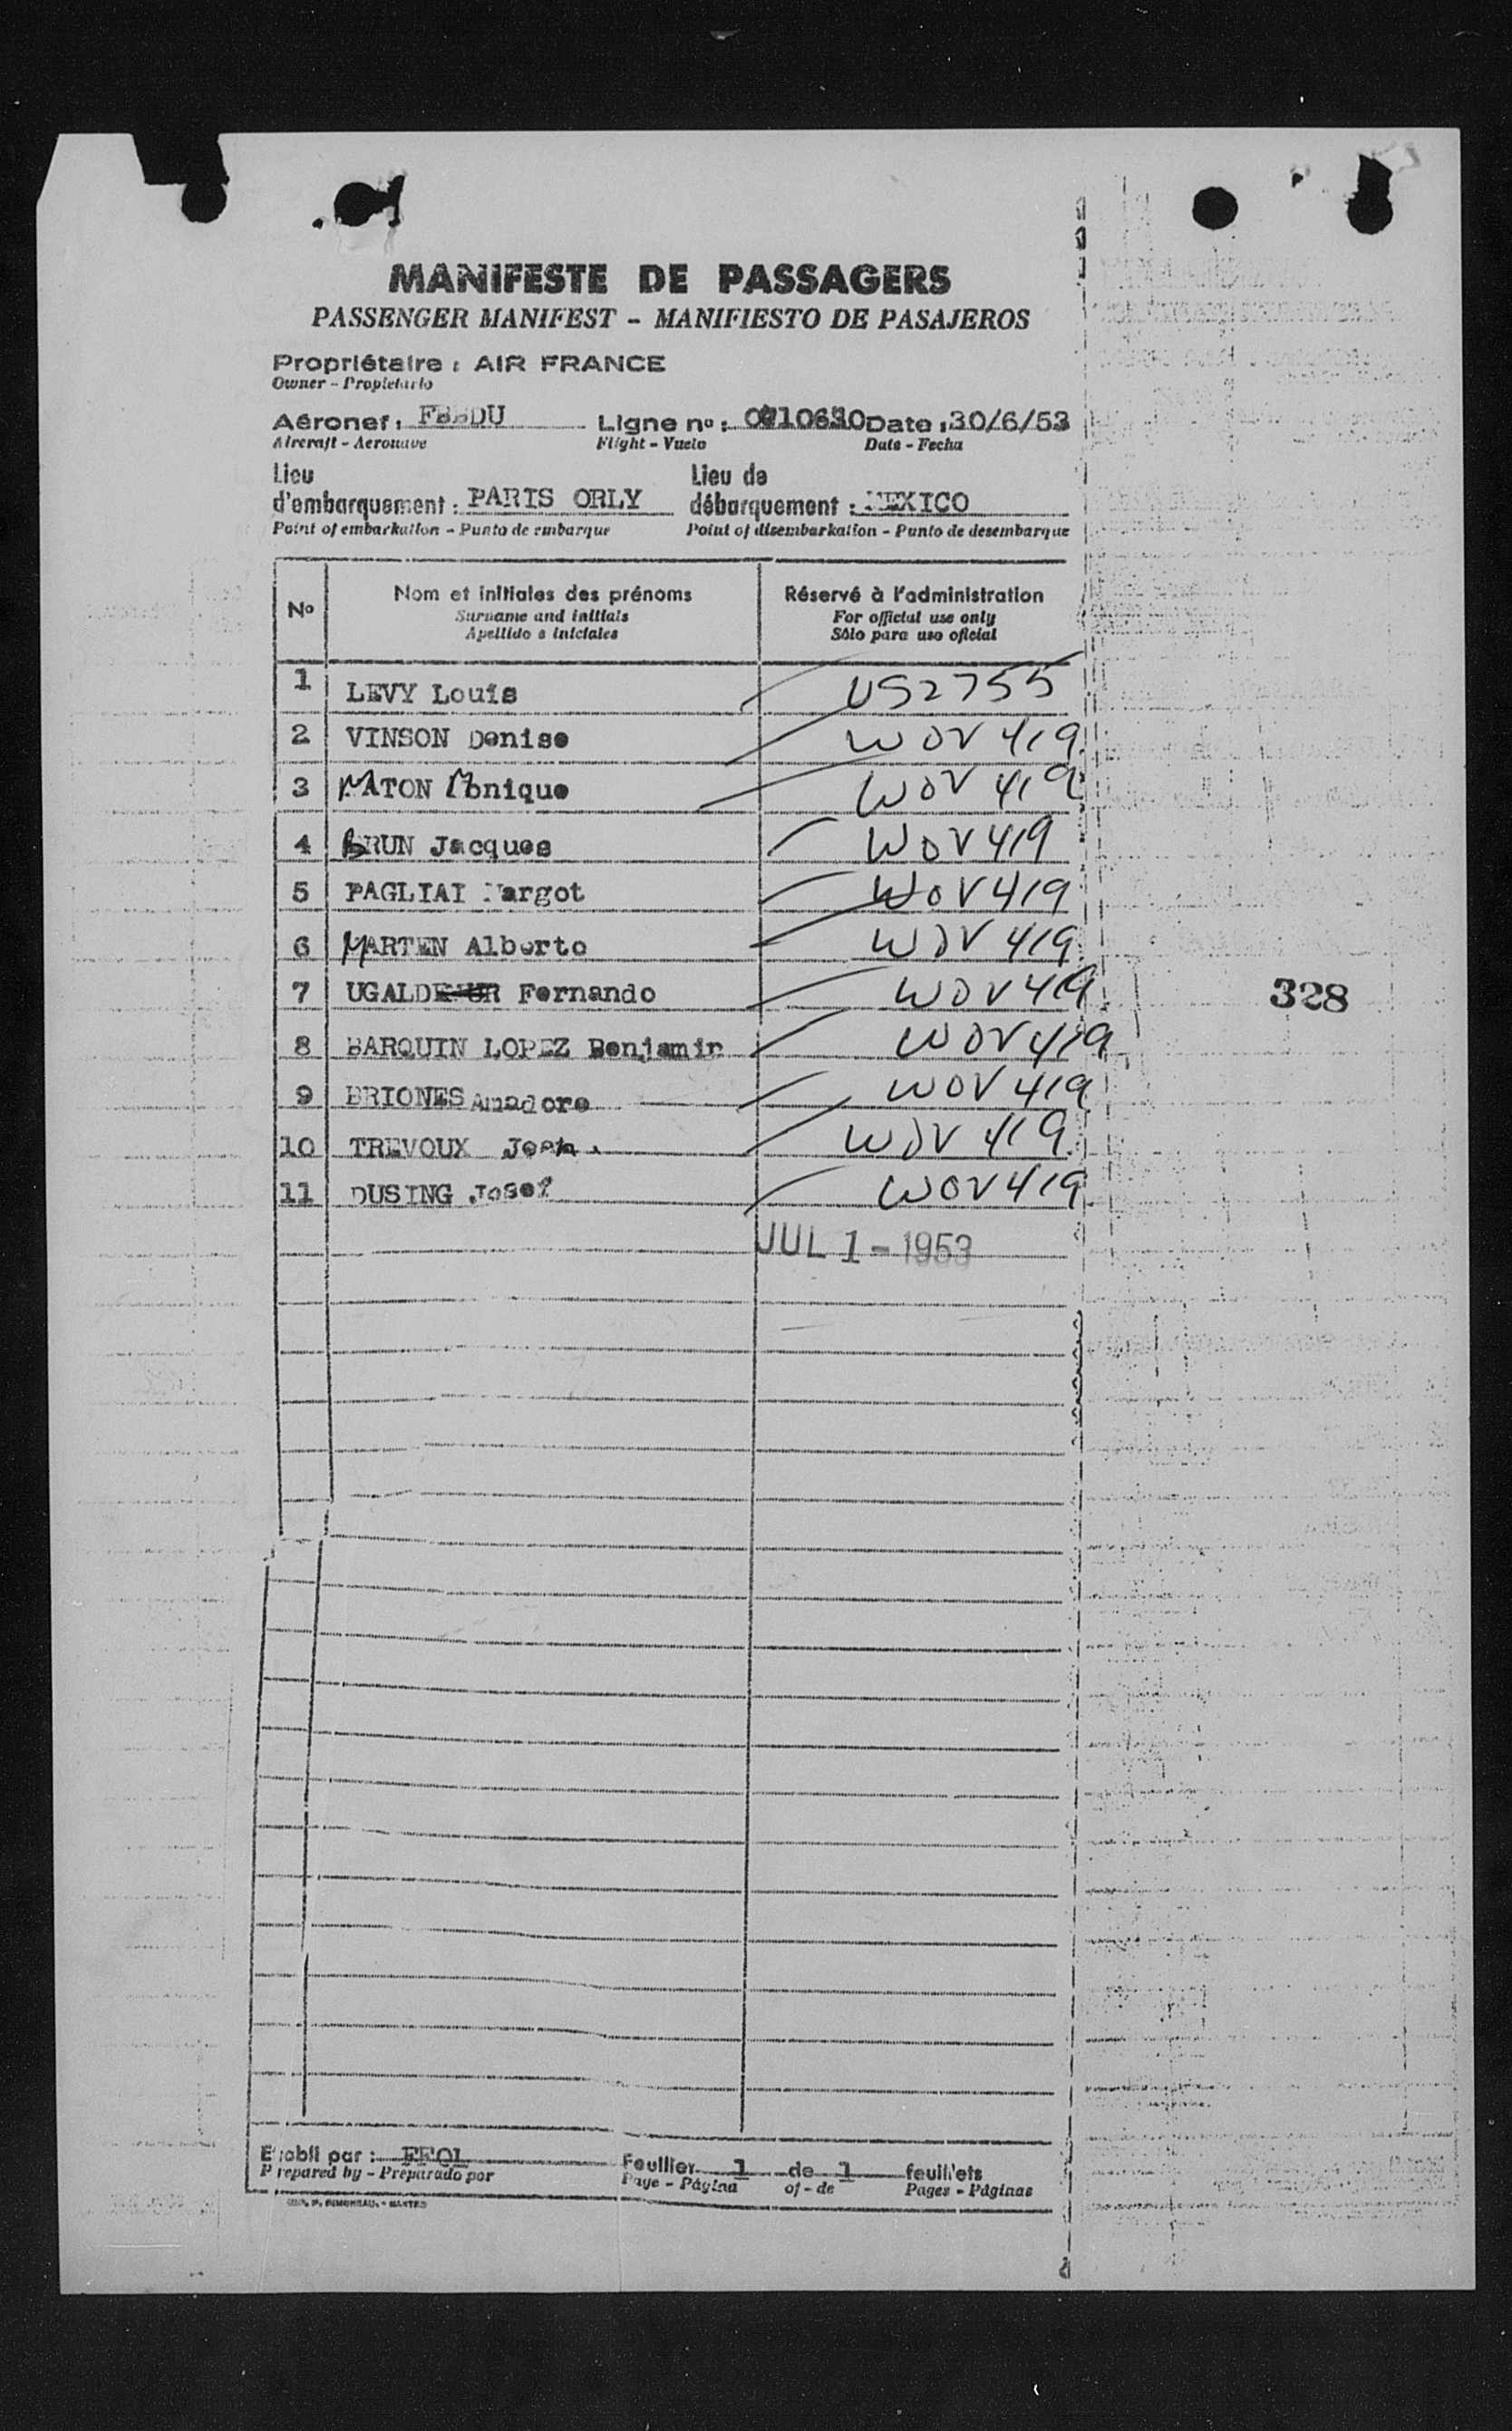 MANIFESTE DE PASSAGERS
PASSENGER MANIFEST - MANIFIESTO DE PASAJEROS
Propriétaire : AIR FRANCE
Owner - Propietario
Aéronef : FBBDU Ligne nº : Date : 30/6/53
Aircraft - Aeronave Flight - Vuelo Date - Fecha
Lieu Lieu de
d'embarquement : PARIS ORLY débarquement : MEXICO
Point of embarkation - Punto de embarque Point of disembarkation - Punto de desembarque
Nº Nom et initiales des prénoms Réservé à l'administration
Surname and initials For official use only
Apellido e iniciales Sólo para uso oficial
1 LEVY Louis US2755
2 VINSON Denise WOV 419
3 MATON Monique WOV 419
4 BRUN Jacques WOV 419
5 PAGLIAI Margot WOV 419
6 MARTEN Alberto WOV 419
7 UGALDE Fernando WOV 419
328
8 BARQUIN LOPEZ Benjamin WOV 419
9 BRIONES Amadore WOV 419
10 TREVOUX Jean WOV 419
11 DUSING Josef WOV 419
JUL 1 - 1953
Etabli par : FFOL Feuillet 1 de 1 feuillets
Prepared by - Preparado por Page - Página of - de Pages - Páginas